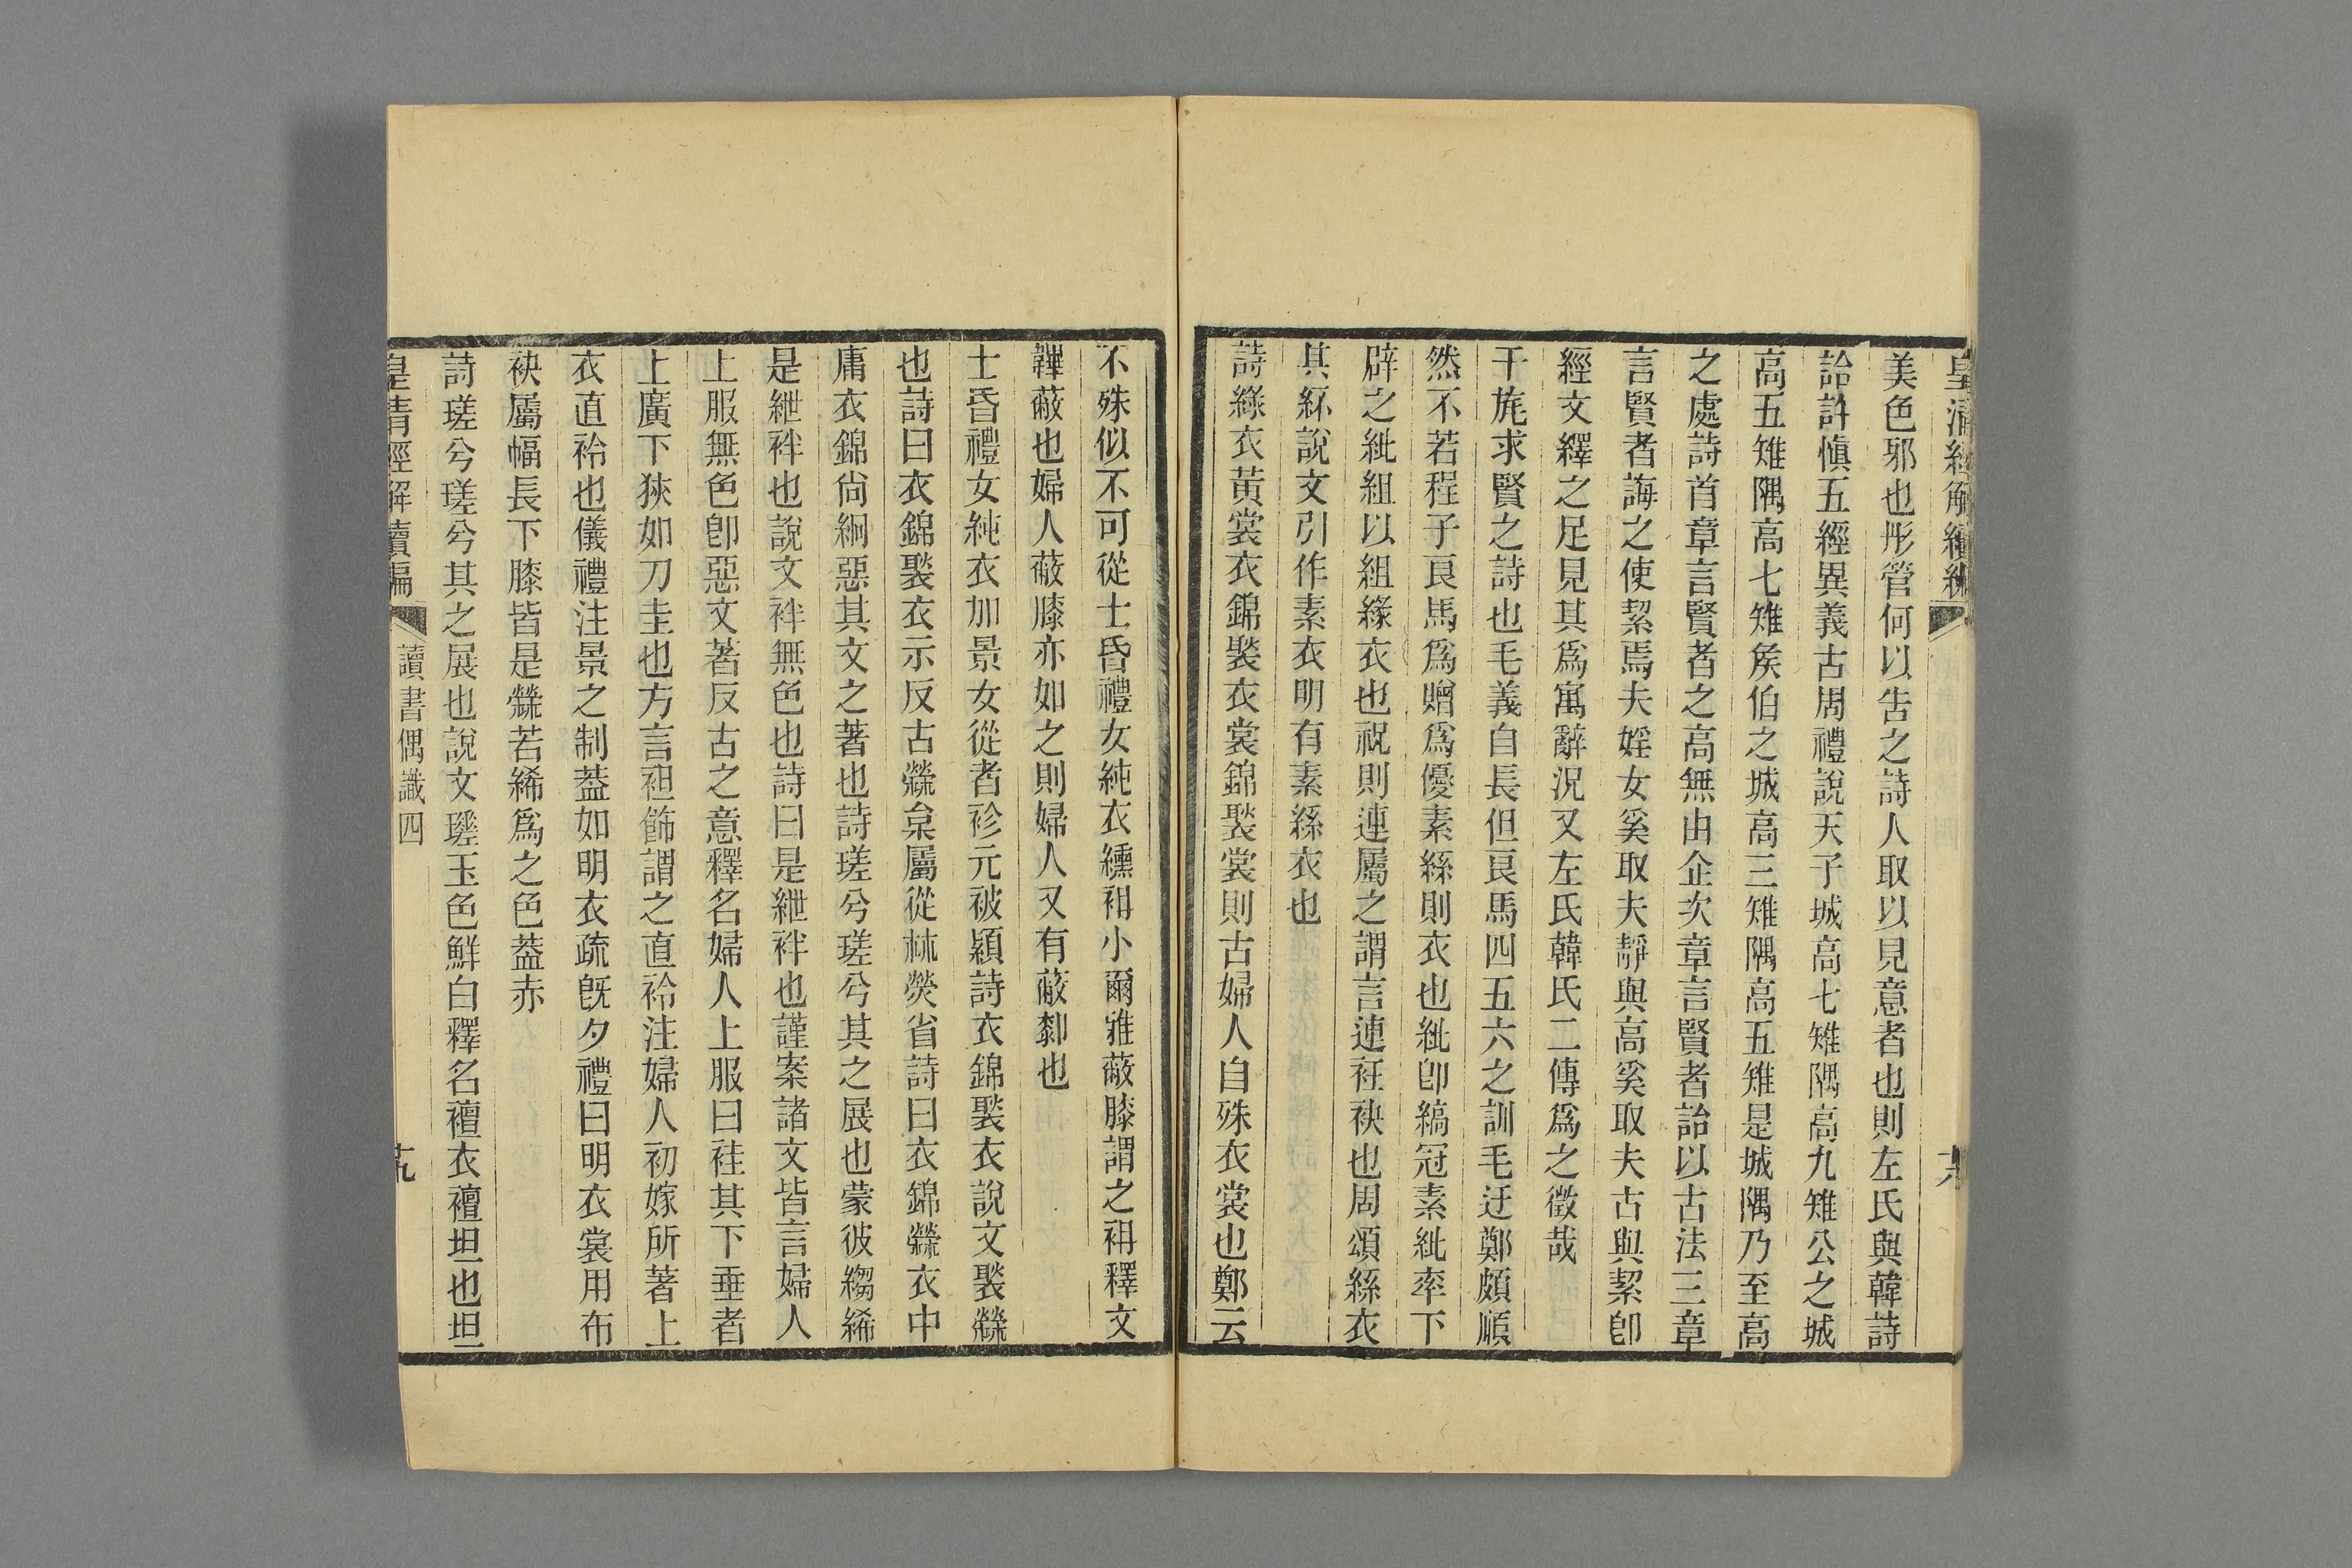 皇清經解續編
美色邪也彤管何以告之詩人取以見意者也則左氏與韓詩
詥許愼五經異義古周禮說天子城高七雉隅高九雉公之城
高五雉隅高七雉矦伯之城高三雉隅高五雉是城隅乃至高
之處詩首章言賢者之高無由企次章言賢者詒以古法三章
言賢者誨之使絜焉夫婬女奚取夫靜與高奚取夫古與絜卽
經文繹之足見其爲寓辭況又左氏韓氏二傳爲之徵哉
干旄求賢之詩也毛義自長但良馬四五六之訓毛迂鄭頗順
然不若程子良馬爲贈爲優素絲則衣也紕卽縞冠素紕率下
辟之紕組以組緣衣也祝則連屬之謂言連衽袂也周頌絲衣
其紑說文引作素衣明有素絲衣也
詩綠衣黃裳衣錦褧衣裳錦褧裳則古婦人自殊衣裳也鄭云
不殊似不可從士昏禮女純衣纁袡小爾雅蔽膝謂之袡釋文
韠蔽也婦人蔽膝亦如之則婦人又有蔽䣛也
士昏禮女純衣加景女從者袗元被顈詩衣錦褧衣說文褧檾
也詩曰衣錦褧衣示反古檾枲屬從𣏟熒省詩曰衣錦檾衣中
庸衣錦尙絅惡其文之著也詩瑳兮瑳兮其之展也蒙彼縐絺
是紲袢也說文袢無色也詩曰是紲袢也謹案諸文皆言婦人
上服無色卽惡文著反古之意釋名婦人上服曰袿其下垂者
上廣下狹如刀圭也方言袒飾謂之直衿注婦人初嫁所著上
衣直衿也儀禮注景之制葢如明衣疏旣夕禮曰明衣裳用布
袂屬幅長下膝皆是檾若絺爲之色葢赤
詩瑳兮瑳兮其之展也說文瑳玉色鮮白釋名襢衣襢坦也坦
皇淸經解續編
讀書偶識四